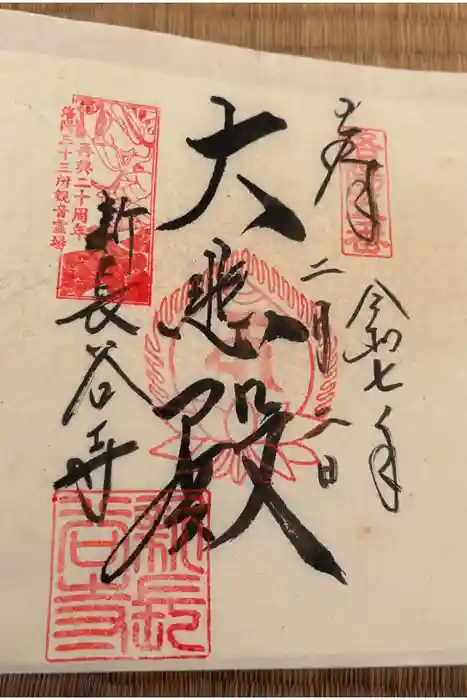 奉拝
令和七年
二月 日
大悲殿
再興二十周年
洛陽三十三所観音霊場
新長谷寺
新長谷寺